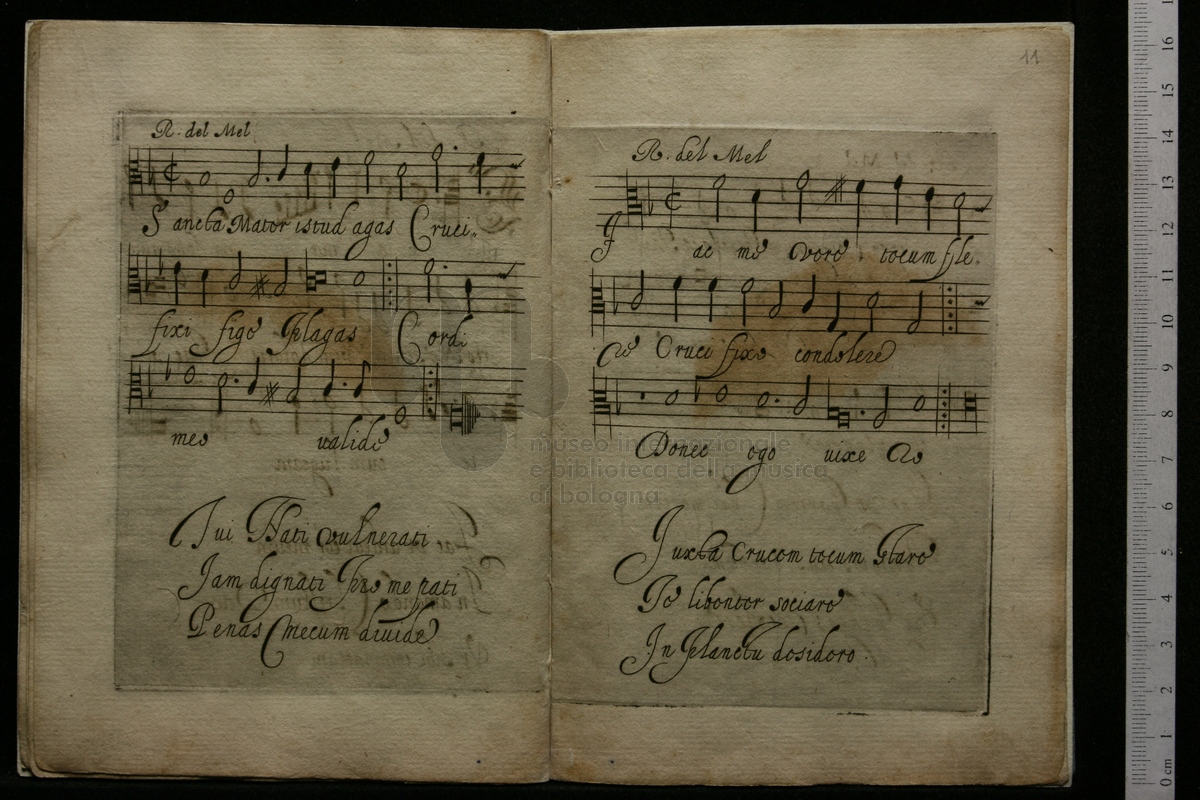 R. del Mel
Sancta Mater istud agas Cruci„
fixi fige Plagas Cordi
meo valide
Tui Nati Vulnerati
Iam dignati Pro me pati
Penas mecum diuide
11
R. del Mel
Fac me Vere tecum fle.
re Cruci fixo condolere
Donec ego uixe Ro
Iuxta Crucem tecum Stare
Te libenter sociare
In Planctu desidero.
museo internazionale
e biblioteca della musica
di bologna
0 cm 1 2 3 4 5 6 7 8 9 10 11 12 13 14 15 16